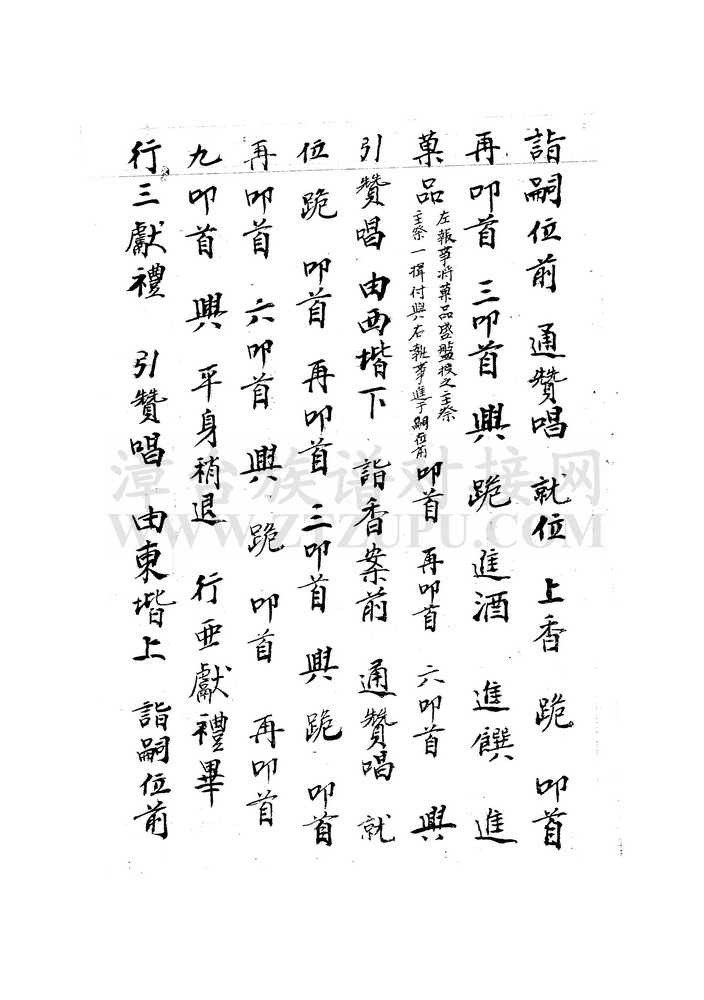 詣嗣位前 通贊唱 就位 上香 跪 叩首
再叩首 三叩首 興 跪 進酒 進饌 進
菓品
左報事将菓品盛盤授之主祭
主祭一揖付與右執事進于嗣位前
叩首 再叩首 六叩首 興
引贊唱 由西堦下 詣香案前 通贊唱 就
位 跪 叩首 再叩首 三叩首 興 跪 叩首
再叩首 六叩首 興 跪 叩首 再叩首
九叩首 興 平身稍退 行亜獻禮畢
行三獻禮 引贊唱 由東堦上 詣嗣位前
漳台族谱对接网
WWW.ZTZUPU.COM